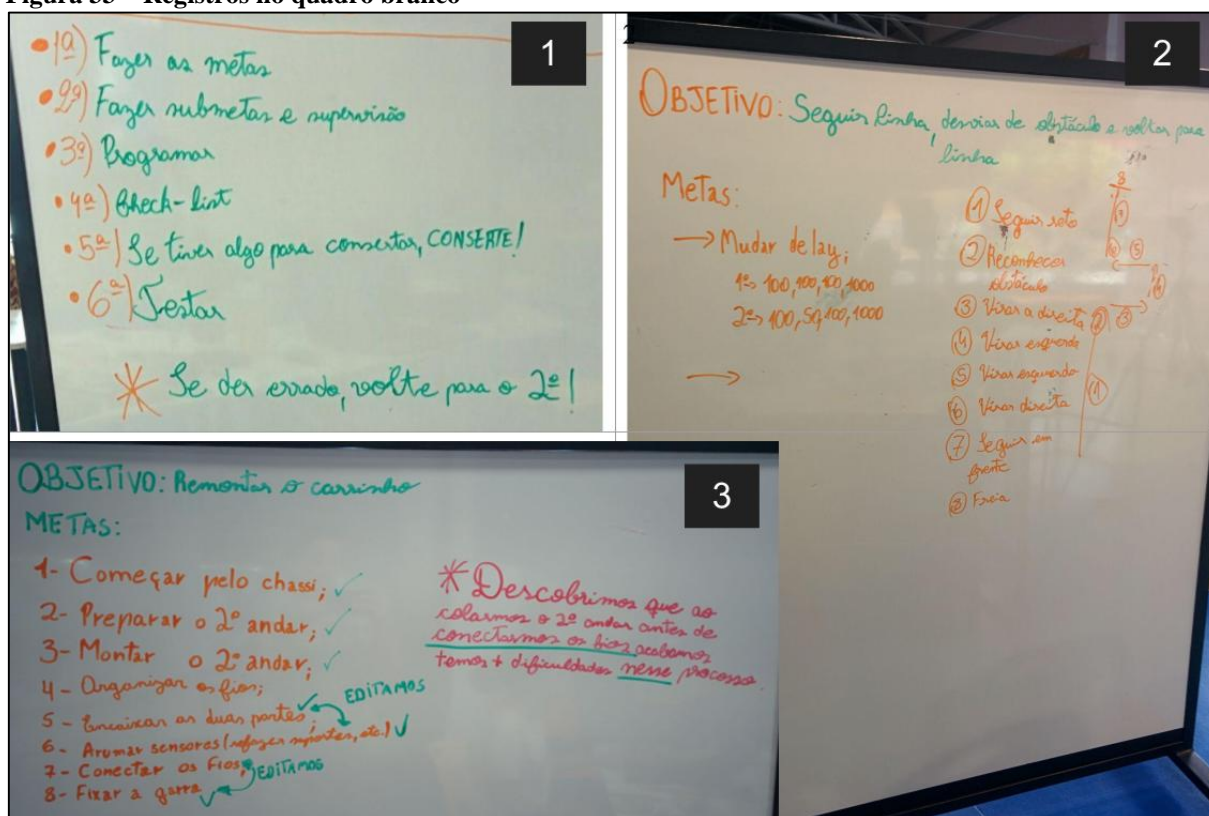 Figura 35 – Registros no quadro branco
1
• 1ª) Fazer as metas
• 2ª) Fazer submetas e supervisão
• 3ª) Programar
• 4ª) Check-list
• 5ª) Se tiver algo para consertar, CONSERTE!
• 6ª) Testar
* Se der errado, volte para o 2º!
2
2
OBJETIVO: Seguir linha, desviar de obstáculo e voltar para
linha
Metas:
→ Mudar delay;
1º→ 100, 100, 100, 1000
2º→ 100, 50, 100, 1000
→
1 Seguir reto
2 Reconhecer
obstáculo
3 Virar a direita
4 Virar esquerda
5 Virar esquerda
6 Virar direita
7 Seguir em
frente
8 Freia
8
7
6 5
4
2 3
1
3
OBJETIVO: Remontar o carrinho
METAS:
1- Começar pelo chassi; ✓
2- Preparar o 2º andar; ✓
3- Montar o 2º andar; ✓
4- Organizar os fios;
5- Encaixar as duas partes; ✓ EDITAMOS
6- Arrumar sensores (refazer suportes, etc.) ✓
7- Conectar os Fios; EDITAMOS
8- Fixar a garra ✓
* Descobrimos que ao
colarmos o 2º andar antes de
conectarmos os fios acabamos
temos + dificuldades nesse processo.